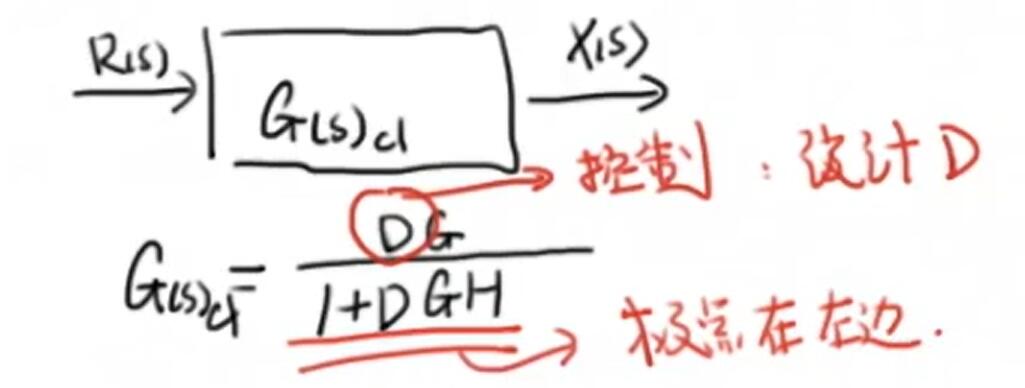 R(s) G(s)cl X(s)
控制：设计D
G(s)cl = DG / 1+DGH
极点在左边.